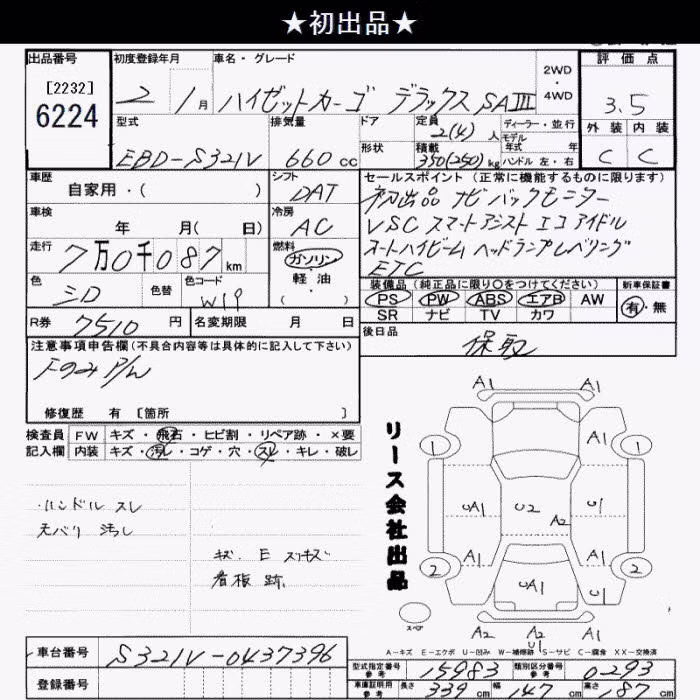 ★初出品★
出品番号 初度登録年月 車名・グレード 2WD・4WD 評価点
[2232]
6224
2 1月 ハイゼットカーゴ デラックス SAⅢ 3.5
型式 排気量 ドア 定員 2(4)人 ディーラー・並行 外装 内装
モデル年式 年
EBD-S321V 660cc 形状 積載 350(250)kg ハンドル 左・右 C C
車歴 シフト セールスポイント (正常に機能するものに限ります)
自家用・( ) DAT 初出品 ナビ バックモニター
車検 冷房 VSC スマートアシスト エコアイドル
年 月( 日) AC オートハイビーム ヘッドランプレベリング
走行 7万0千087km 燃料 ガソリン・軽油・( ) ETC
色 色替 色コード 装備品 (純正品に限り○をつけてください) 新車保証書
ミD W19 PS PW ABS エアB AW 有・無
SR ナビ TV カワ
R券 7510円 名変期限 月 日 後日品
注意事項申告欄(不具合内容等は具体的に記入して下さい) 保取
Fのみ P/W
修復歴 有 [箇所 ]
検査員 FW キズ・飛石・ヒビ割・リペア跡・×要
記入欄 内装 キズ・汚レ・コゲ・穴・スレ・キレ・破レ
ハンドル スレ
天バリ 汚レ
キズ E スリキズ
看板跡
リース会社出品
A1 A1
1 A1 1
UA1 U2 A2 U1
2 A1 UA1 A1 2
U1
スペア A2 A2 A1
U1
A-キズ E-エクボ U-凹み W-補修跡 S-サビ C-腐食 XX-交換済
車台番号 S321V-0437396
登録番号
型式指定番号 参考 15983 類別区分番号 参考 0293
車庫証明用 参考 長さ 339cm 幅 147cm 高さ 87cm